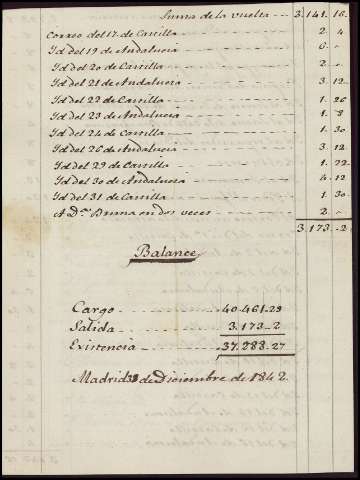 Suma de la vuelta --- 3.141. 16.
Correo del 17 de Castilla --- 2. 4
Yd del 19 de Andalucia --- 6. "
Yd del 20 de Castilla --- 2. "
Yd del 21 de Andalucia --- 3. 12
Yd del 22 de Castilla --- 1. 26
Yd del 23 de Andalucia --- 1. 8
Yd del 24 de Castilla --- 1. 30
Yd del 26 de Andalucia --- 3. 12
Yd del 29 de Castilla --- 1. 22
Yd del 30 de Andalucia --- 4. 12
Yd del 31 de Castilla --- 1. 30
A Dn. Bruna en dos veces --- 2. "
3.173 - 2
Balance
Cargo --- 40.461-29
Salida --- 3.173-2
Existencia --- 37.288-27
Madrid 31 de Diciembre de 1842.